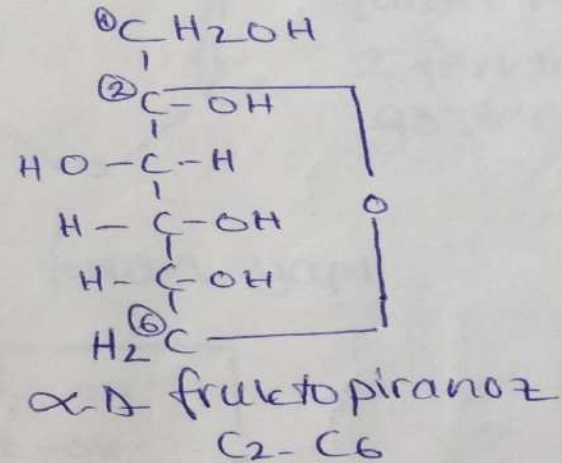 ① CH2OH
② C - OH
HO - C - H
O
H - C - OH
H - C - OH
⑥
H2C
α-D fruktopiranoz
C2 - C6